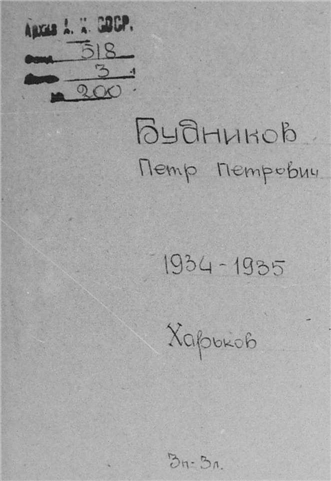 Архив А. Н. СССР.
Фонд 518
Опись 3
№ 200
Будников
Петр Петрович
1934-1935
Харьков
3п-3л.